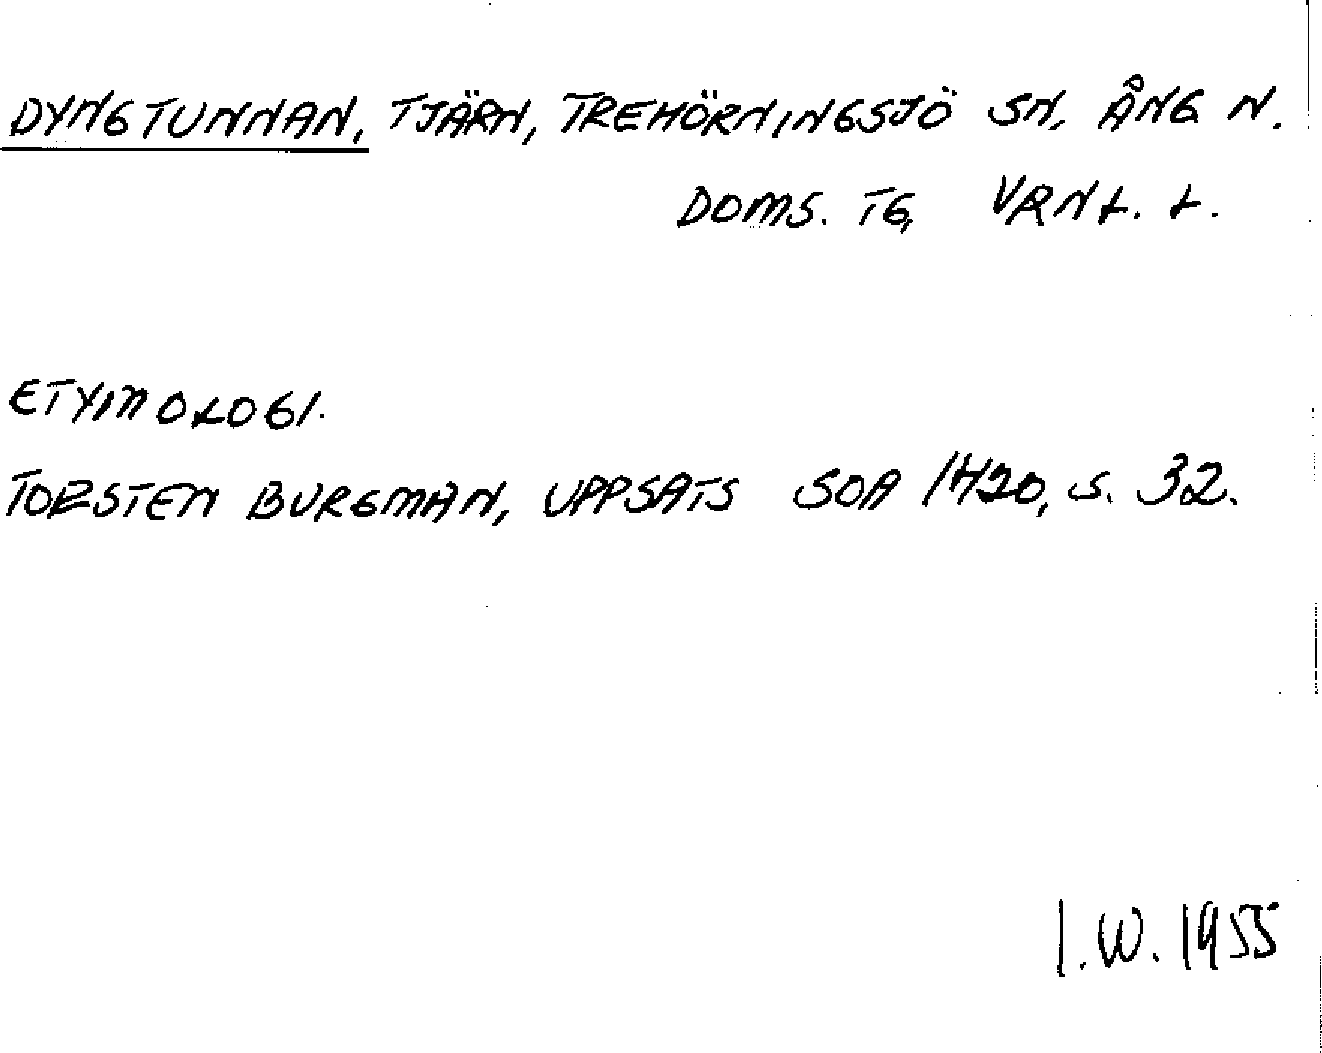 DYNGTUNNAN, TJÄRN, TREHÖRNINGSJÖ SN, ÅNG N.
DOMS. TG, VRNL. L.
ETYMOLOGI.
TORSTEN BURGMAN, UPPSATS SOA 1420, S. 32.
I.W. 1955